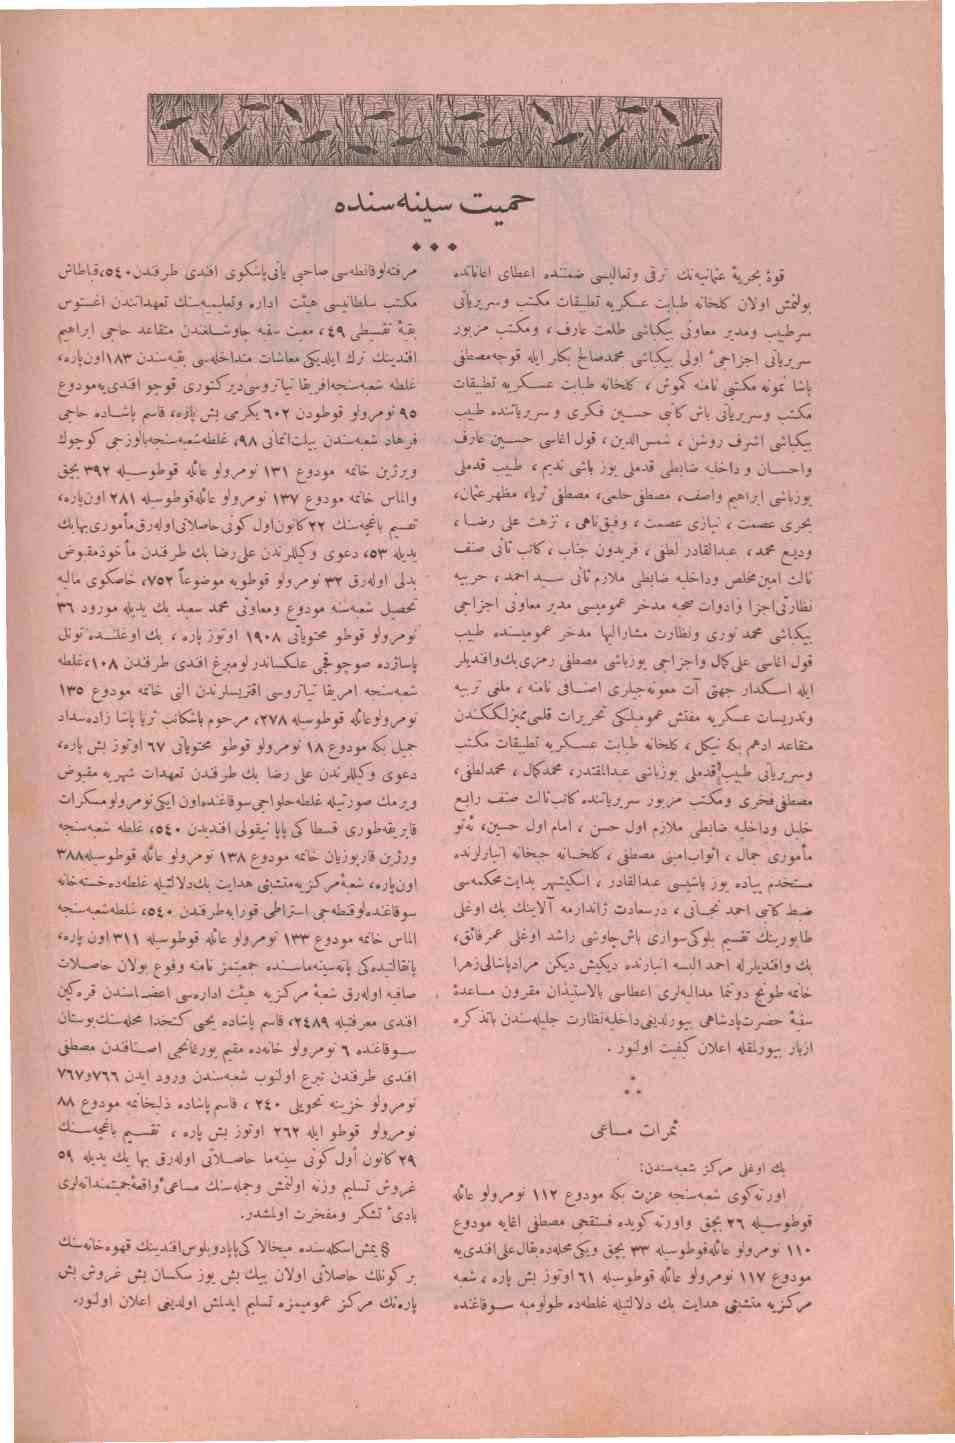 حميت سينه‌سنده
قوهٔ بحريهٔ عثمانيه‌نك ترقى وتعاليسى ضمننده اعطاى اعاناتده
بولنمش اولان كلخانه طبابت عسكريه تطبيقات مكتب وسريرياتى
سرطبيب ومدير معاونى بيكباشى طلعت عارف ، ومكتب مزبور
سريرياتى اجزاجىٔ اولى بيكباشى محمدصالح بكلر ايله قوجه‌مصطفى
پاشا نمونه مكتبى نامنه كموش ، كلخانه طبابت عسكريه تطبيقات
مكتب وسريرياتى باش كاتبى حسين فكرى و سريرياتنده طبيب
بيكباشى اشرف روشن ، شمس‌الدين ، قول اغاسى حسين عارف
واحسان و داخليه ضابطى قدملى يوز باشى نديم ، طبيب قدملى
يوزباشى ابراهيم واصف، مصطفى‌حلمى، مصطفى ثريا، مظهرعثمان،
بحرى عصمت ، نيازى عصمت ، وفيق‌ناهى ، نزهت على رضا ،
وديع محمد، عبدالقادر لطفى ، فريدون جناب ، كاتب ثانى صنف
ثالث امين‌مخلص وداخليه ضابطى ملازم ثانى سيد احمد ، حربيه
نظارتى‌اجزا وادوات صحيه مدخر عموميسى مدير معاونى اجزاجى
بيكباشى محمد نورى ونظارت مشاراليها مدخر عموميسنده طبيب
قول اغاسى على‌كمال واجزاجى يوزباشى مصطفى رمزى‌بك‌وافنديلر
ايله اسكدار جهتى آت معونه‌جيلرى اصنافى نامنه ، ملغى تربيه
وتدريسات عسكريه مفتش عموميلكى تحريرات قلمى‌مميزلكندن
متقاعد ادهم بكه نيكل ، كلخانه طبابت عسكريه تطبيقات مكتب
وسريرياتى طبيب قدملى يوزباشى عبدالمقتدر، محمدكمال ، محمدلطفى،
مصطفى‌فخرى ومكتب مزبور سريرياتنده كاتب‌ثالث صنف رابع
خليل وداخليه ضابطى ملازم اول حسن ، امام اول حسين، ئه‌تو
مأمورى جمال ، اثواب‌امينى مصطفى ، كلخانه جبخانه انبارلرنده
مستخدم پياده يوز باشيسى عبدالقادر ، اسكيشهر بدايت‌محكمه‌سى
ضبط كاتبى احمد نجاتى ، درسعادت ژاندارمه آلاينك بك اوغلى
طابورينك تقسيم بلوكى‌سوارى باش‌چاوشى راشد اوغلى عمرفائق،
بك وافنديلرله احمد البسه انبارنده ديكيش ديكن مرادپاشالى‌زهرا
خانمه طونج دوننما مداليه‌لرى اعطاسى بالاستيذان مقرون مساعدهٔ
سنيهٔ حضرت‌پادشاهى بيورلديغى‌داخليه‌نظارت جليله‌سندن باتذكره
ازبار بيورلمقله اعلان كيفيت اولنور .
ثمرات مساعى
بك اوغلى مركز شعبه‌سندن:
اورته‌كوى شعبه‌سنجه عزت بكه مودوع ١١٢ نومرولو عائله
قوطوسيله ٢٦ بچق واورته كويده فستقجى مصطفى اغايه مودوع
١١٠ نومرولو عائله‌قوطوسيله ٣٣ بچق ويكى‌محله‌ده‌بقال‌على‌افندى‌يه
مودوع ١١٧ نومرولو عائله قوطوسيله ٦١ اوتوز بش پاره ، شعبه
مركزيه متشبثى هدايت بك دلالتيله غلطه‌ده طولومبه سوقاغنده
مرفته‌لوقانطه‌سى صاحبى يانى‌پاشكوى افندى طرفندن٥٤٠،قباطاش
مكتب سلطانيسى هيئت اداره وتعليميه‌سنك تعهداتندن اغستوس
بقيهٔ تقسيطى ٤٩، معيت سنيه چاوشلغندن متقاعد حاجى ابراهيم
افندينك ترك ايلديكى معاشات متداخله‌سى بقيه‌سندن ١٨٣اون‌پاره،
غلطه شعبه‌سنجه‌افريقا تياتروسى‌ديركتورى قوچو افندى‌يه‌مودوع
٩٥ نومرولو قوطودن ٦٠٢ يكرمى بش پاره، قاسم پاشاده حاجى
فرهاد شعبه‌سندن بيلت‌اثمانى ٩٨، غلطه‌شعبه‌سنجه‌بالوزجى كوچوك
ويرژين خانمه مودوع ١٣١ نومرولو عائله قوطوسيله ٣٩٢ بچق
والماس خانمه مودوع ١٣٧ نومرولو عائله‌قوطوسيله ٢٨١ اون‌پاره،
تقسيم باغچه‌سنك ٢٢كانون‌اول كونى‌حاصلاتى‌اوله‌رق‌مأمورى‌بهابك
يديله ٥٣، دعوى وكيللرندن على‌رضا بك طرفندن مأخوذمقبوض
بدلى اوله‌رق ٣٢ نومرولو قوطويه موضوعاً ٧٥٢، خاصكوى ماليه
تحصيل شعبه‌سنه مودوع ومعاونى محمد سعيد بك يديله مورود ٣٦
نومرولو قوطو محتوياتى ١٩٠٨ اوتوز پاره ، بك اوغلنده تونل
پاساژده صوچوقجى علكساندر لومبرغ افندى طرفندن ١٠٨،غلطه
شعبه‌سنجه امريقا تياتروسى اقتريسلرندن النى خانمه مودوع ١٣٥
نومرولوعائله قوطوسيله ٢٧٨، مرحوم باشكاتب ثريا پاشا زاده‌سداد
جميل بكه مودوع ١٨ نومرولو قوطو محتوياتى ٦٧ اوتوز بش پاره،
دعوى وكيللرندن على رضا بك طرفندن تعهدات شهريه مقبوض
ويرمك صورتيله غلطه حلواجى‌سوقاغنده‌اون ايكى‌نومرولومسكرات
فابريقه‌طورى قسطاكى پاپا نيقولى افنديدن ٥٤٠، غلطه شعبه‌سنجه
ورژين قاربوزيان خانمه مودوع ١٣٨ نومرولو عائله قوطوسيله٣٨٨
اون‌پاره، شعبهٔ مركزيه‌متشبثى هدايت بك‌دلالتيله غلطه‌ده خسته‌خانه
سوقاغنده‌لوقنطه‌جى استراطى قورايه‌طرفندن ٥٤٠، غلطه‌شعبه‌سنجه
الماس خانمه مودوع ١٣٣ نومرولو عائله قوطوسيله ٣١١ اون پاره،
پانغالتيده‌كى پاته‌سينه‌ماسنده جمعيتمز نامنه وقوع بولان حاصلات
صافيه اوله‌رق شعبهٔ مركزيه هيئت اداره‌سى اعضاسندن قره‌كين
افندى معرفتيله ٢٤٨٩، قاسم پاشاده يحيى كتخدا محله‌سنك‌بوستان
سوقاغنده ٦ نومرولو خانه‌ده مقيم يورغانجى اصنافندن مصطفى
افندى طرفندن تبرع اولنوب شعبه‌سندن ورود ايدن ٧٦٦و٧٦٧
نومرولو خزينه تحويلى ٢٤٠ ، قاسم پاشاده ذليخانمه مودوع ٨٨
نومرولو قوطو ايله ٢٦٢ اوتوز بش پاره ، تقسيم باغچه‌سنك
٢٩ كانون أول كونى سينه‌ما حاصلاتى اوله‌رق بها بك يديله ٥٩
غروش تسليم وزنه اولنمش وجمله‌سنك مساعىٔ واقعهٔ‌حميتمندانه‌لرى
بادىٔ تشكر ومفخرت اولمشدر.
§ يمش‌اسكله‌سنده ميخالاكى‌پاپادوپلوس‌افندينك قهوه‌خانه‌سنك
بر كونلك حاصلاتى اولان بيك بش يوز سكسان بش غروش بش
پاره‌نك مركز عموميمزه تسليم ايدلمش اولديغى اعلان اولنور.